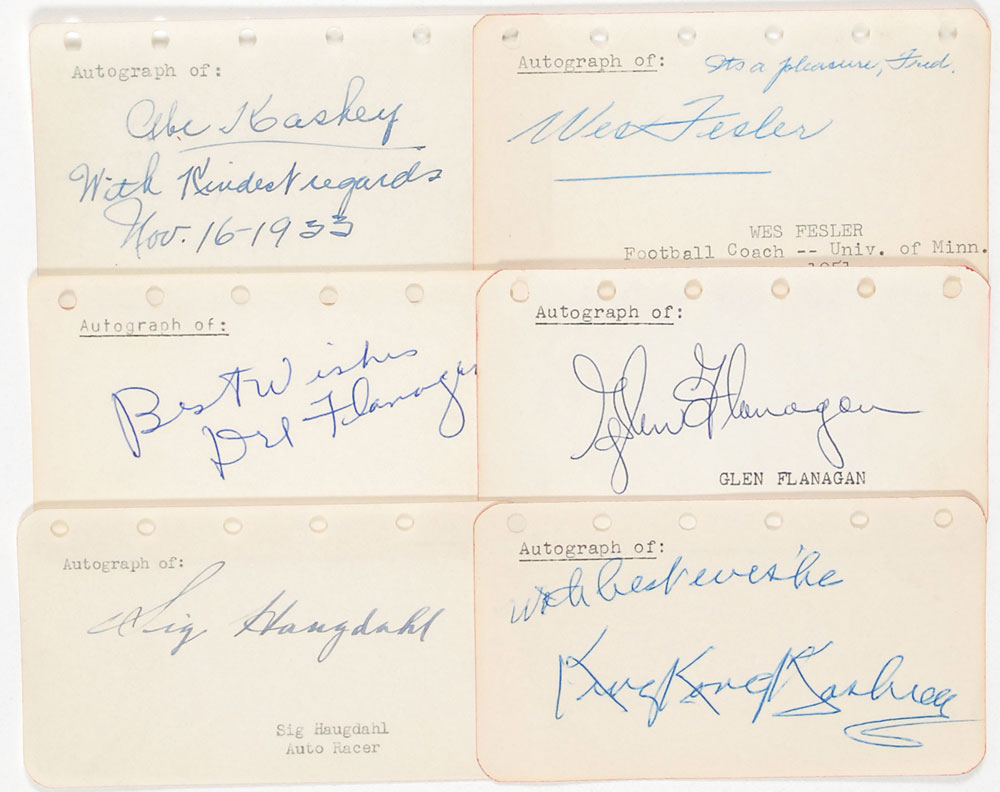 Autograph of:
Abe Kashey
With Kindest regards
Nov. 16-1933
Autograph of:
Its a pleasure, Fred.
Wes Fesler
WES FESLER
Football Coach -- Univ. of Minn.
1951
Autograph of:
Best Wishes
Del Flanagan
Autograph of:
Glen Flanagan
GLEN FLANAGAN
Autograph of:
Sig Haugdahl
Sig Haugdahl
Auto Racer
Autograph of:
with best
King Kong Kashey